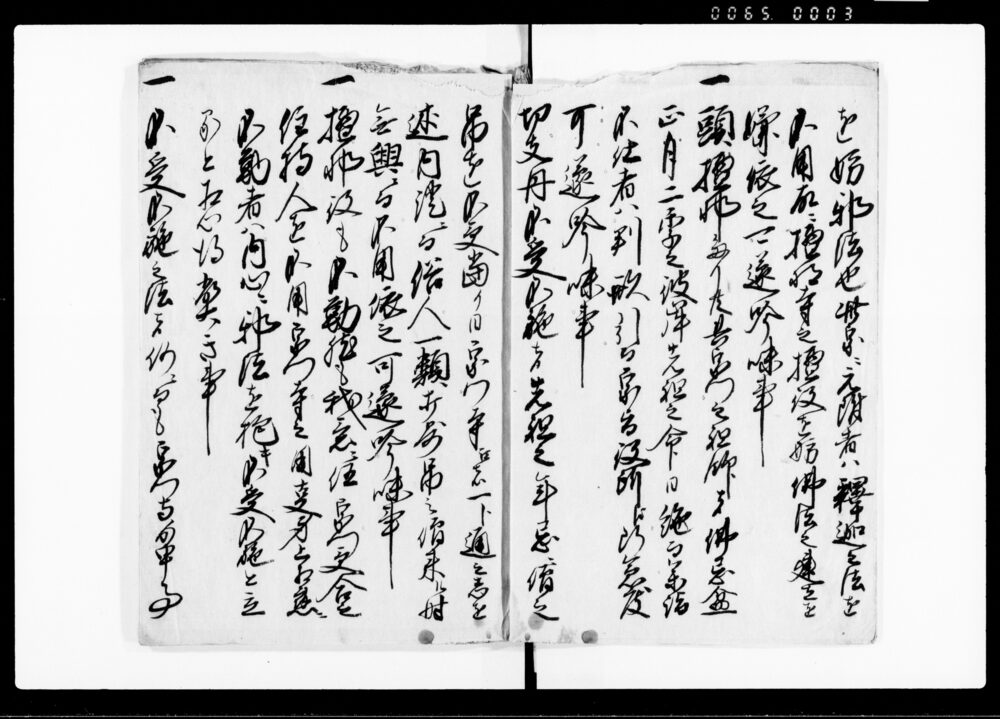 0065.0003
を妨邪法也此宗ニ元附者ハ釋迦之法を
不用故ニ檀那寺之檀役を妨佛法之建立を
嫌依之可遂吟味事
一 頭檀那たり共其宗門之祖師者佛忌盆
正月二季之彼岸先祖之命日絶而参詣
不仕者ハ判形引
可遂吟味事
一 切支丹不受不施者先祖之年忌僧之
弔を不受當日宗門寺江一ト通之志を
述内證ニ而俗人一類打寄弔之僧来ル時
無興ニ而不用依之可遂吟味事
一 檀那役も不勤然も我意ニ住宗門受合之
住持人を不用宗門寺之用事身上相應ニ
不勤者ハ内心ニ邪法を抱き不受不施を立
ると相心得へき事
一 不受不施之法者何ニ而も宗門寺より申事